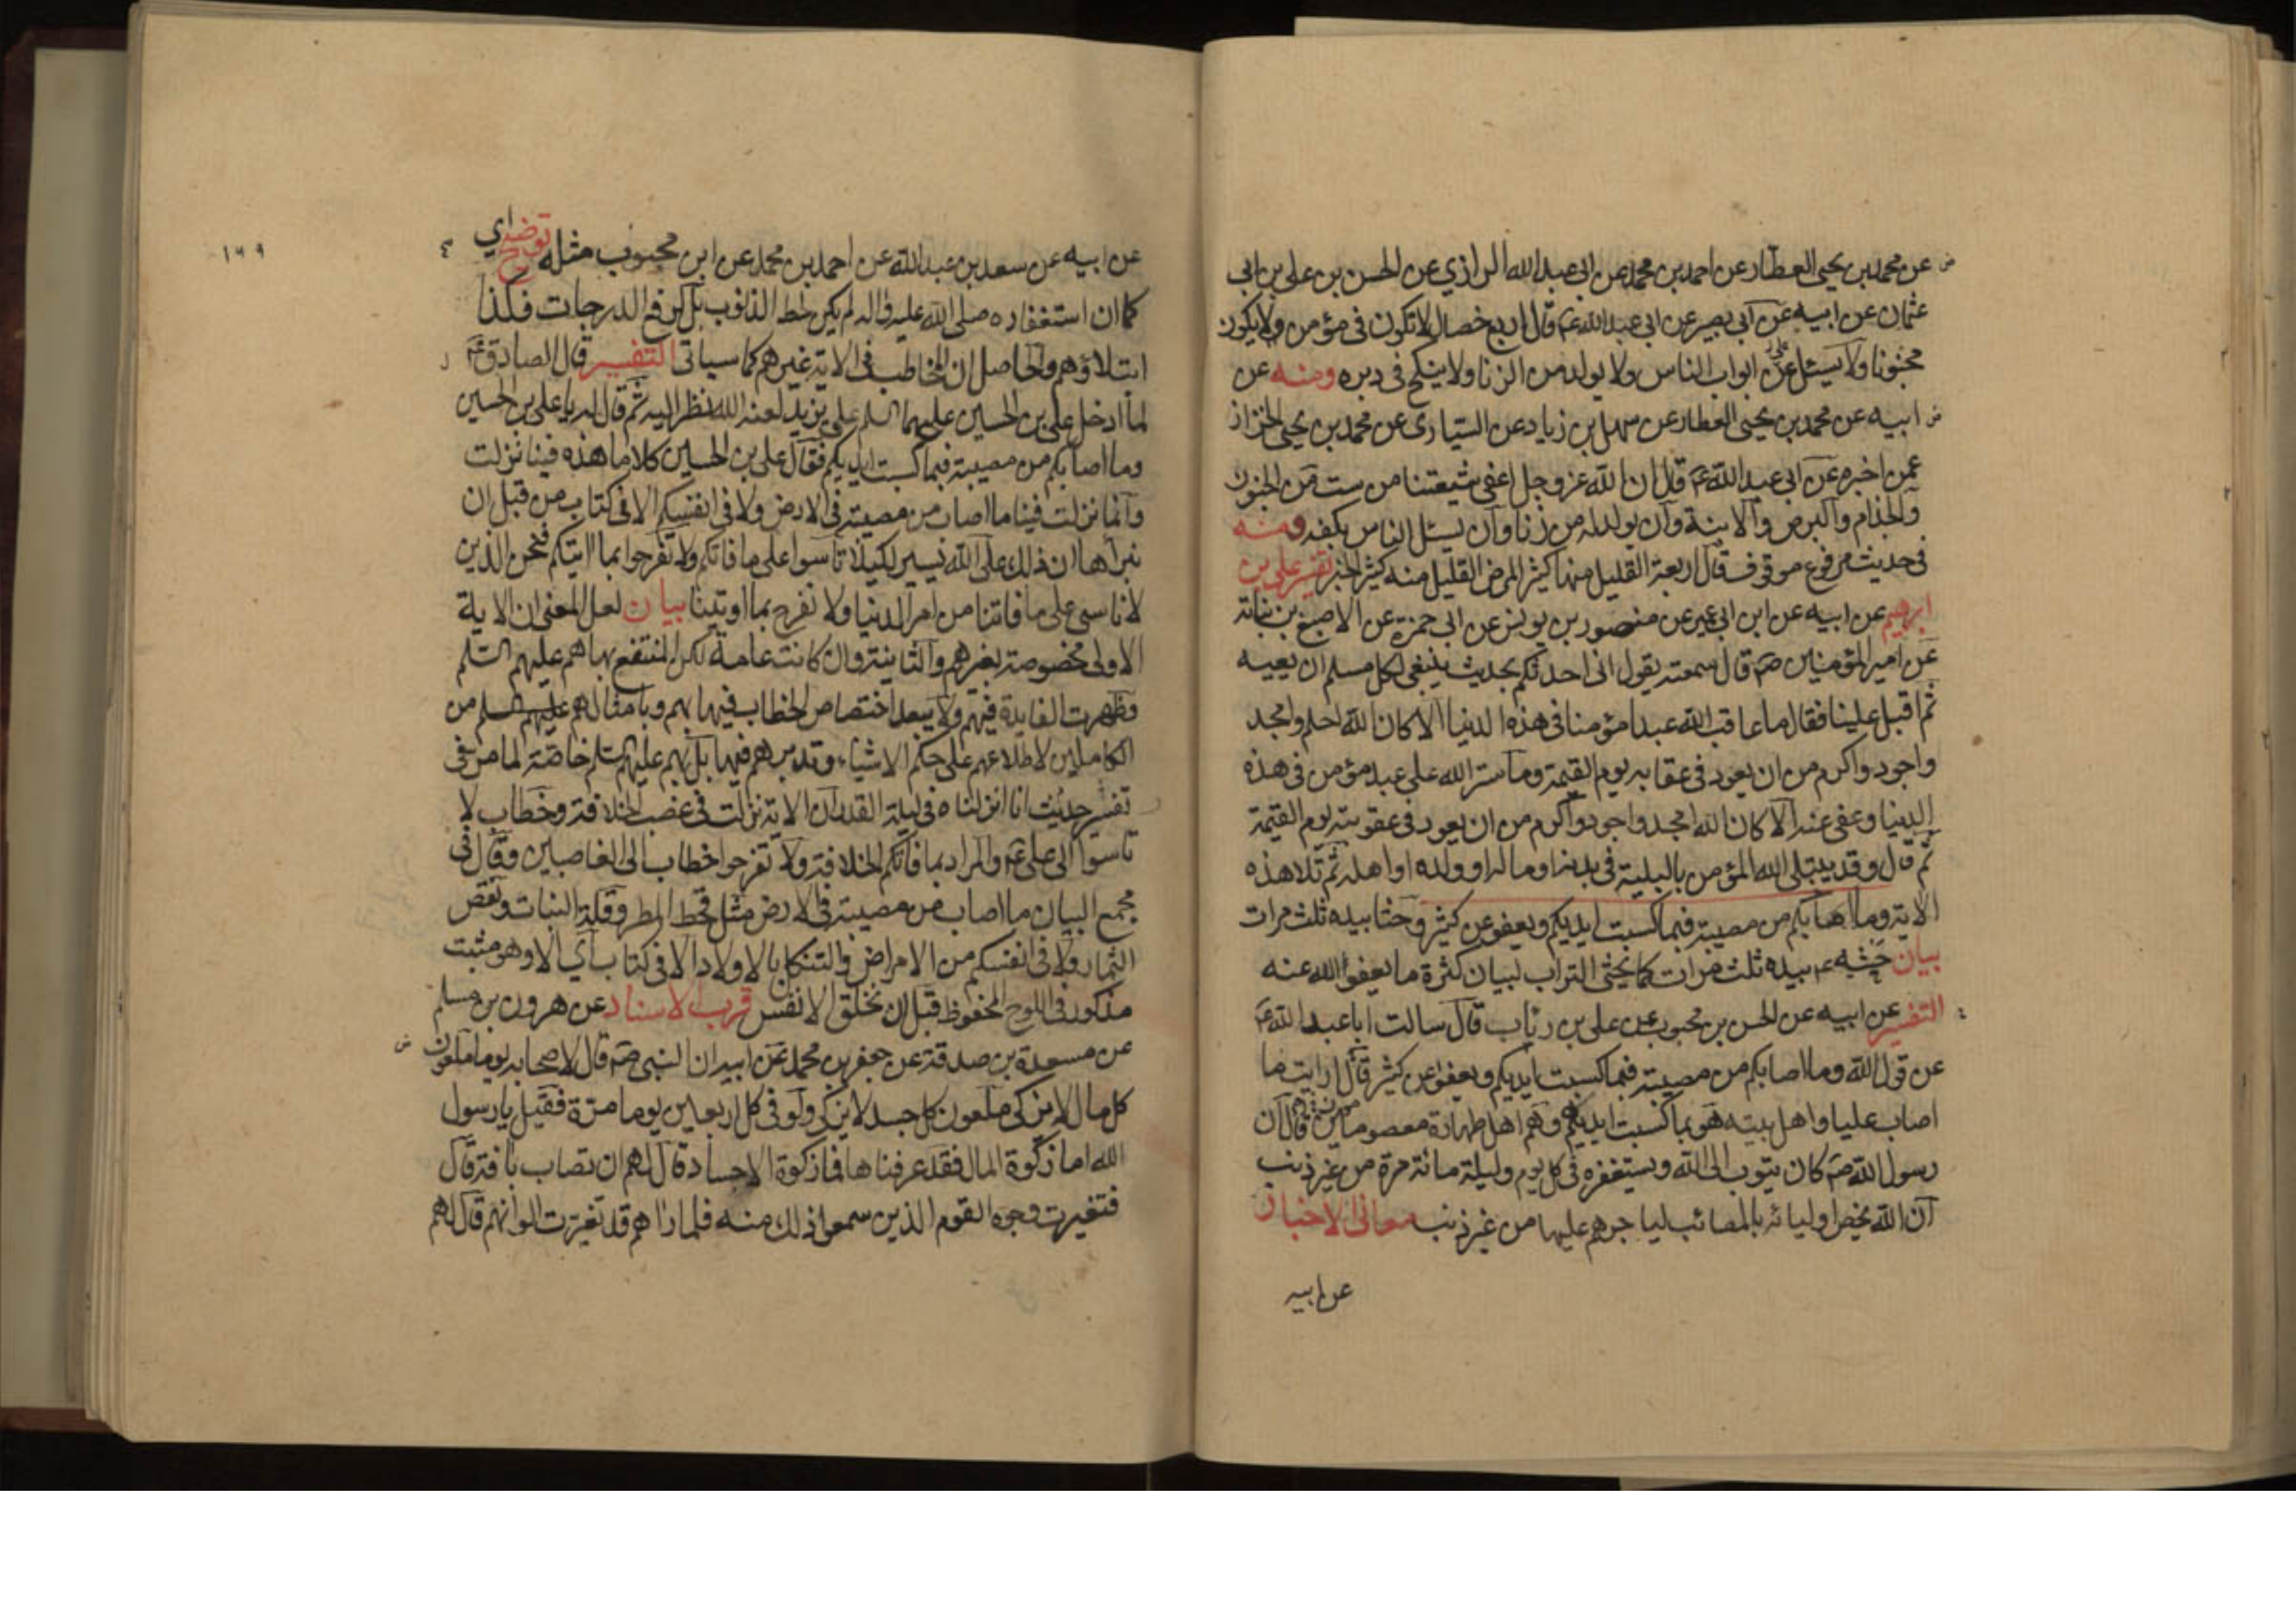 عن محمد بن يحيى العطار عن احمد بن محمد عن ابى عبد الله الرازي عن الحسن بن على بن ابى
عثمان عن ابيه عن ابى بصير عن ابى عبد الله ع قال اربع خصال لا تكون فى مؤمن ولا يكون
مجنونا ولا يسئل عن على ابواب الناس ولا يولد من الزنا ولا ينكح فى دبره ومنه عن
ابيه عن محمد بن يحيى العطار عن سهل بن زياد عن السيارى عن محمد بن يحيى الخزاز
عمن اخبره عن ابى عبد الله ع قال ان الله عز وجل اعفى شيعتنا من ست من الجنون
والجذام والبرص والابنة وان يولد له من زنا وان يسئل الناس بكفه ومنه
فى حديث مرفوع موقوف قال اربعة القليل منها كثير المرض القليل منه كثير الخبر تفسير على بن
ابرهيم عن ابيه عن ابن ابى عمير عن منصور بن يونس عن ابى حمزة عن الاصبغ بن نباتة
عن امير المؤمنين ص قال سمعته يقول انى احدثكم بحديث ينبغى لكل مسلم ان يعيه
ثم اقبل علينا فقال ما عاقب الله عبدا مؤمنا فى هذه الدنيا الا كان الله احلم وامجد
واجود واكرم من ان يعود فى عقابه يوم القيمة وما ستر الله على عبد مؤمن فى هذه
الدنيا وعفى عنه الا كان الله امجد واجود واكرم من ان يعود فى عقوبته يوم القيمة
ثم قال وقد يبتلى الله المؤمن بالبلية فى بدنه او ماله او ولده او اهله ثم تلا هذه
الاية وما اصابكم من مصيبة فبما كسبت ايديكم ويعفو عن كثير وحثا بيده ثلث مرات
بيان حثيه ع بيده ثلث مرات كما يحثى التراب لبيان كثرة ما يعفو الله عنه
التفسير عن ابيه عن الحسن بن محبوب عن على بن رئاب قال سالت ابا عبد الله ع
عن قول الله وما اصابكم من مصيبة فبما كسبت ايديكم ويعفو عن كثير قال ارايت ما
اصاب عليا واهل بيته هو بما كسبت ايديهم وهم اهل طهارة معصومين قال ان
رسول الله ص كان يتوب الى الله ويستغفره فى كل يوم وليلة مائة مرة من غير ذنب
ان الله يخص اوليائه بالمصائب لياجرهم عليها من غير ذنب معانى الاخبار
عن ابيه
١٦٩
عن ابيه عن سعد بن عبد الله عن احمد بن محمد عن ابن محبوب مثله توضيح اي
كما ان استغفاره صلى الله عليه واله لم يكن لحط الذنوب بل لرفع الدرجات فكذا
ابتلاؤهم والحاصل ان المخاطب فى الاية غيرهم كما سياتى التفسير قال الصادق ع
لما ادخل على بن الحسين عليهما السلم على يزيد لعنه الله نظر اليه ثم قال له يا على بن الحسين
وما اصابكم من مصيبة فبما كسبت ايديكم فقال على بن الحسين كلا ما هذه فينا نزلت
وانما نزلت فينا ما اصاب من مصيبة فى الارض ولا فى انفسكم الا فى كتاب من قبل ان
نبراها ان ذلك على الله يسير لكيلا تاسوا على ما فاتكم ولا تفرحوا بما اتيكم فنحن الذين
لا ناسى على ما فاتنا من امر الدنيا ولا نفرح بما اوتينا بيان لعل المعنى ان الاية
الاولى مخصوصة بغيرهم والثانية وان كانت عامة لكن المنتفع بها هم عليهم السلم
وظهرت الفايدة فيهم ولا يبعد اختصاص الخطاب فيها بهم وبامثالهم عليهم السلم من
الكاملين لاطلاعهم على حكم الاشياء وتدبرهم فيها بل بهم عليهم السلم خاصة لما مر فى
تفسير حديث انا انزلناه فى ليلة القدر ان الاية نزلت فى غصب الخلافة وخطاب لا
تاسوا الى على ع والمراد بما فاتكم الخلافة ولا تفرحوا خطاب الى الغاصبين وقال فى
مجمع البيان ما اصاب من مصيبة فى الارض مثل قحط المطر وقلة النبات ونقص
الثمار ولا فى انفسكم من الامراض والثكل بالاولاد الا فى كتاب اي الا وهو مثبت
مذكور فى اللوح المحفوظ قبل ان نخلق الانفس قرب الاسناد عن هرون بن مسلم
عن مسعدة بن صدقة عن جعفر بن محمد عن ابيه ان النبى ص قال لاصحابه يوما ملعون
كل مال لا يزكى ملعون كل جسد لا يزكى ولو فى كل اربعين يوما مرة فقيل يا رسول
الله اما زكوة المال فقد عرفناها فما زكوة الاجساد قال لهم ان تصاب بافة قال
فتغيرت وجوه القوم الذين سمعوا ذلك منه فلما راهم قد تغيرت الوانهم قال لهم